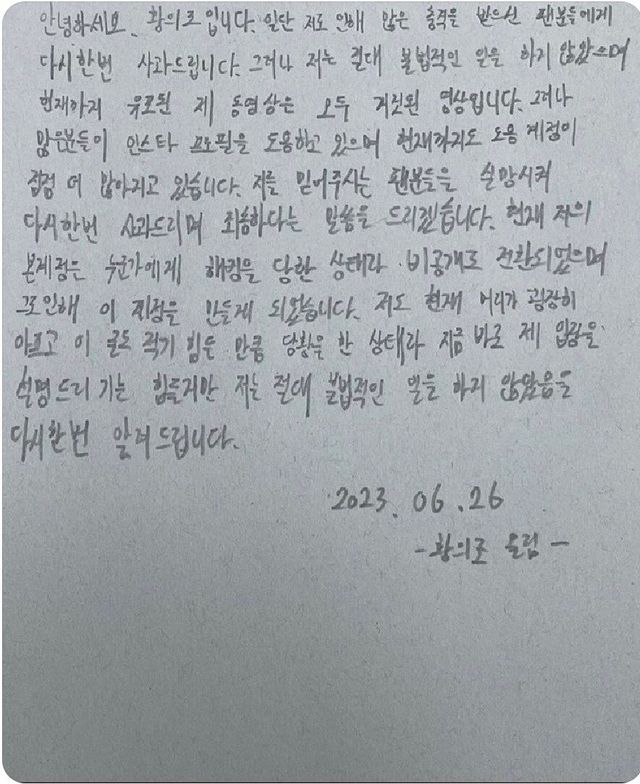 안녕하세요. 황의조입니다. 일단 저로 인해 많은 충격을 받으신 팬분들에게
다시한번 사과드립니다. 그러나 저는 절대 불법적인 일을 하지 않았으며
현재까지 유포된 제 동영상은 모두 거짓된 영상입니다. 그러나
많은분들이 인스타 프로필을 도용하고 있으며 현재까지도 도용 계정이
점점 더 많아지고 있습니다. 저를 믿어주시는 팬분들을 실망시켜
다시한번 사과드리며 죄송하다는 말씀을 드리겠습니다. 현재 저의
본계정은 누군가에게 해킹을 당한 상태라 비공개로 전환되었으며
그로인해 이 지경을 만들게 되었습니다. 저도 현재 머리가 굉장히
아프고 이 글도 적기 힘들 만큼 당황을 한 상태라 지금 바로 제 입장을
설명드리기는 힘들지만 저는 절대 불법적인 일을 하지 않았음을
다시한번 알려드립니다.
2023. 06. 26
- 황의조 올림 -